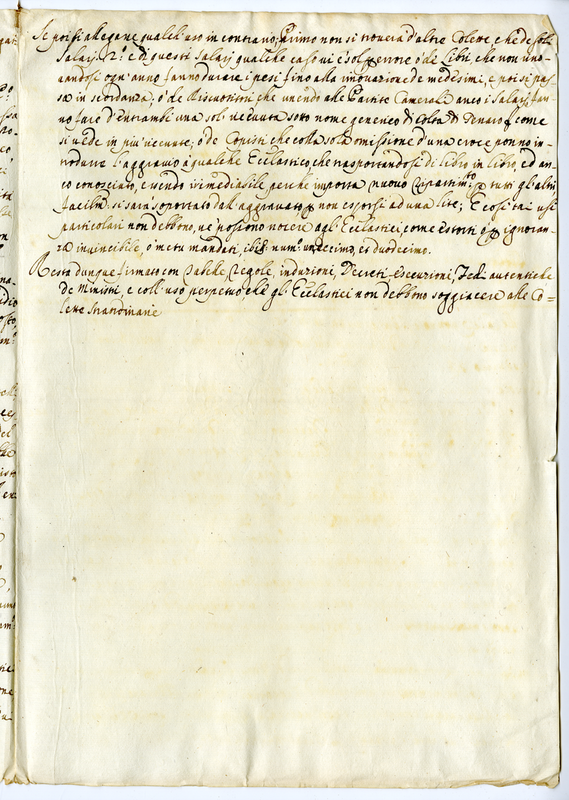 Se poi si allegane qualch'uso in contrario; Primo non si trouerà d'altre Colette che de soli
Salarj. 2.º e di questi Salarj qualche caso ui è sol p errore ò de Libri, che non inno-
uandosi ogn'anno fanno durare i pesi fino alla inouazione de medesimi, e poi si pas-
sa in scordanza; ò de Riscuotitori che unendo alle Partite Camerali anco i Salarj, fan-
no fare d'entrambi una sol riceuuta sotto nome generico di Colta di Denaro, come
si uede in più riceuute; ò de Copisti che colla sola omissione d'una croce ponno in-
trodurre l'aggrauio à qualche Ecclastico, che trasportandosi di libro in libro, ed an-
co conosciuto, e uendo irrimediabile perche importa nuouo Ripartim.to p tutti gl'altri
facilm.e si sarà soportato dall'aggrauato p non esporsi ad una lite; E così tai usi
particolari non debbono, nè possono nocere agl'Ecclastici, come estorti ò p ignoran-
za inuincibile, ò metu mandati, ibi num.º undecimo, et duodecimo.
Resta dunque firmato con Regole, induzioni, Decreti, escuzioni, Fedi autentiche
de Ministri, e coll'uso perpetuo che gl'Ecclastici non debbono soggiacere alle Co=
lette